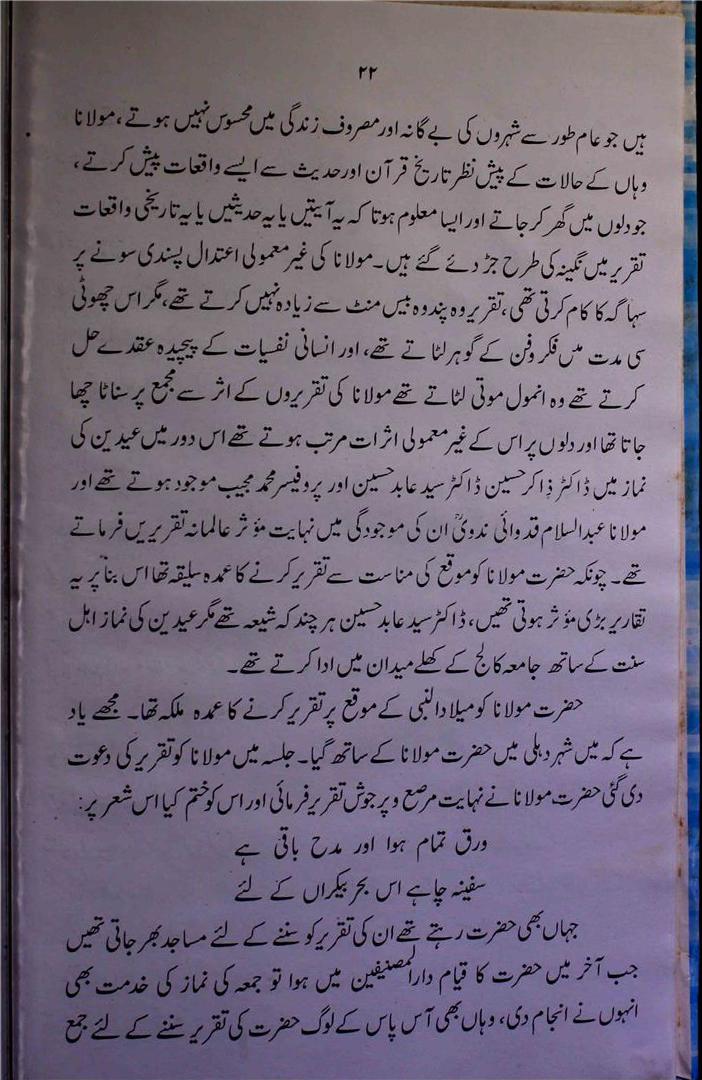 ۲۲
ہیں جو عام طور سے شہروں کی بے گانہ اور مصروف زندگی میں محسوس نہیں ہوتے، مولانا
وہاں کے حالات کے پیش نظر تاریخ قرآن اور حدیث سے ایسے واقعات پیش کرتے،
جو دلوں میں گھر کر جاتے اور ایسا معلوم ہوتا کہ یہ آیتیں یا یہ حدیثیں یا یہ تاریخی واقعات
تقریر میں نگینہ کی طرح جڑ دئے گئے ہیں۔ مولانا کی غیر معمولی اعتدال پسندی سونے پر
سہاگہ کا کام کرتی تھی، تقریر وہ پندوہ بیس منٹ سے زیادہ نہیں کرتے تھے، مگر اس چھوٹی
سی مدت میں فکر و فن کے گوہر لٹاتے تھے، اور انسانی نفسیات کے پیچیدہ عقدے حل
کرتے تھے وہ انمول موتی لٹاتے تھے مولانا کی تقریروں کے اثر سے مجمع پر سناٹا چھا
جاتا تھا اور دلوں پر اس کے غیر معمولی اثرات مرتب ہوتے تھے اس دور میں عیدین کی
نماز میں ڈاکٹر ذاکر حسین ڈاکٹر سید عابد حسین اور پروفیسر محمد مجیب موجود ہوتے تھے اور
مولانا عبدالسلام قدوائی ندویؒ ان کی موجودگی میں نہایت مؤثر عالمانہ تقریریں فرماتے
تھے۔ چونکہ حضرت مولانا کو موقع کی مناست سے تقریر کرنے کا عمدہ سلیقہ تھا اس بنا پر یہ
تقاریر بڑی مؤثر ہوتی تھیں، ڈاکٹر سید عابد حسین ہر چند کہ شیعہ تھے مگر عیدین کی نماز اہل
سنت کے ساتھ جامعہ کالج کے کھلے میدان میں ادا کرتے تھے۔
حضرت مولانا کو میلاد النبی کے موقع پر تقریر کرنے کا عمدہ ملکہ تھا۔ مجھے یاد
ہے کہ میں شہر دہلی میں حضرت مولانا کے ساتھ گیا۔ جلسہ میں مولانا کو تقریر کی دعوت
دی گئی حضرت مولانا نے نہایت مرصع و پر جوش تقریر فرمائی اور اس کو ختم کیا اس شعر پر:
ورق تمام ہوا اور مدح باقی ہے
سفینہ چاہے اس بحر بیکراں کے لئے
جہاں بھی حضرت رہتے تھے ان کی تقریر کو سننے کے لئے مساجد بھر جاتی تھیں
جب آخر میں حضرت کا قیام دارالمصنیفین میں ہوا تو جمعہ کی نماز کی خدمت بھی
انہوں نے انجام دی، وہاں بھی آس پاس کے لوگ حضرت کی تقریر سننے کے لئے جمع